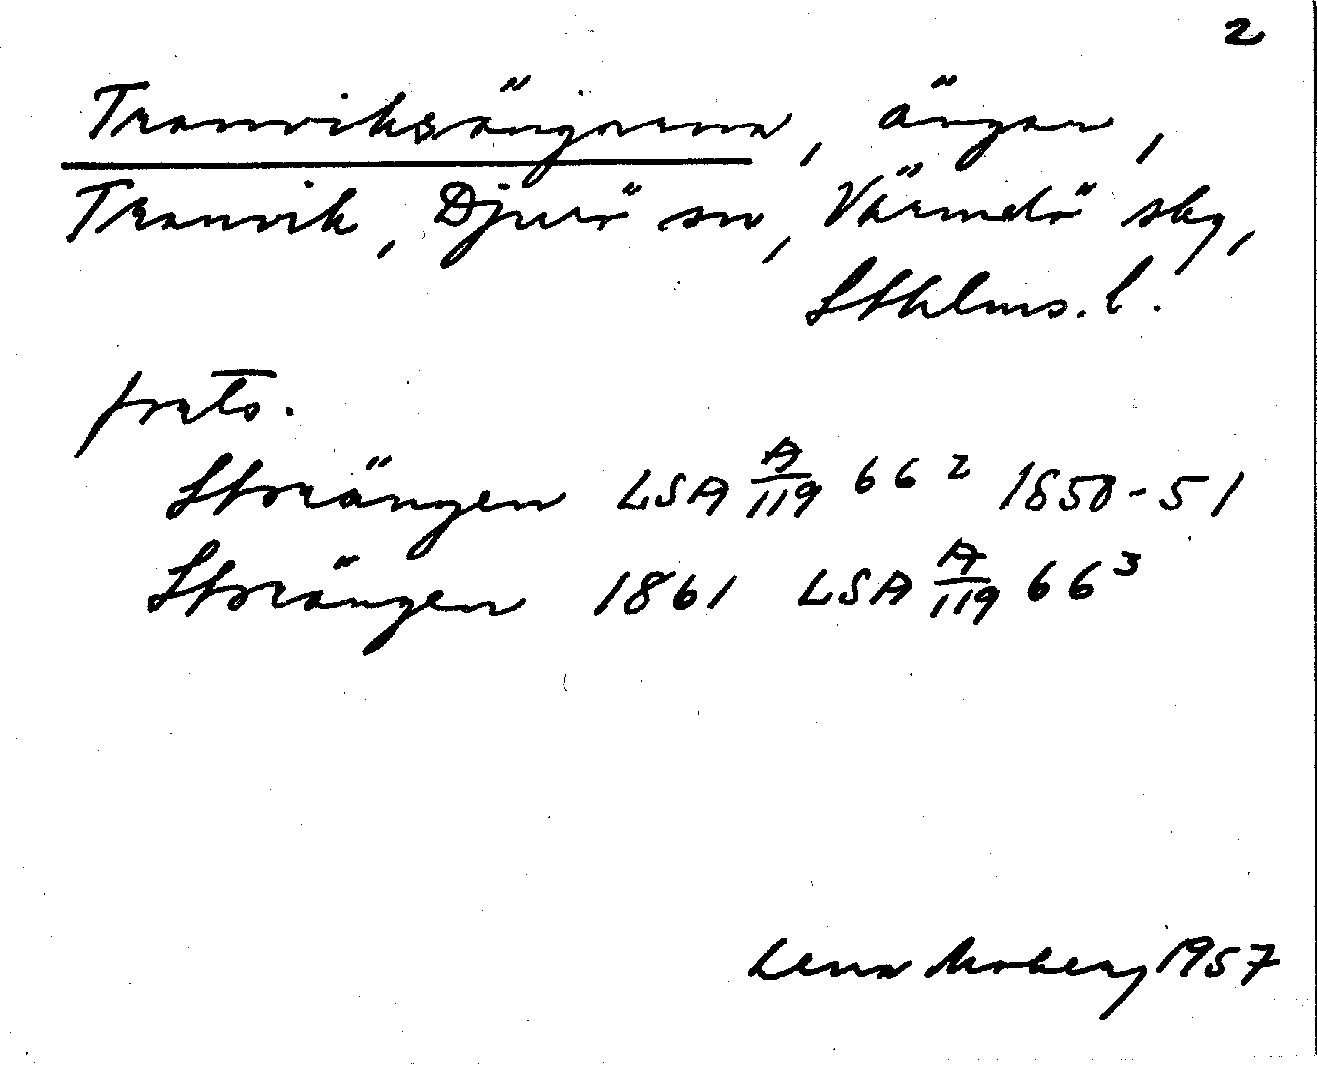 2
Tranviksängarna, ängar,
Tranvik, Djurö sn, Värmdö sky,
Sthlms. l.
forts.
Storängen LSA A/119 66² 1850-51
Storängen 1861 LSA A/119 66³
Lena Moberg 1957